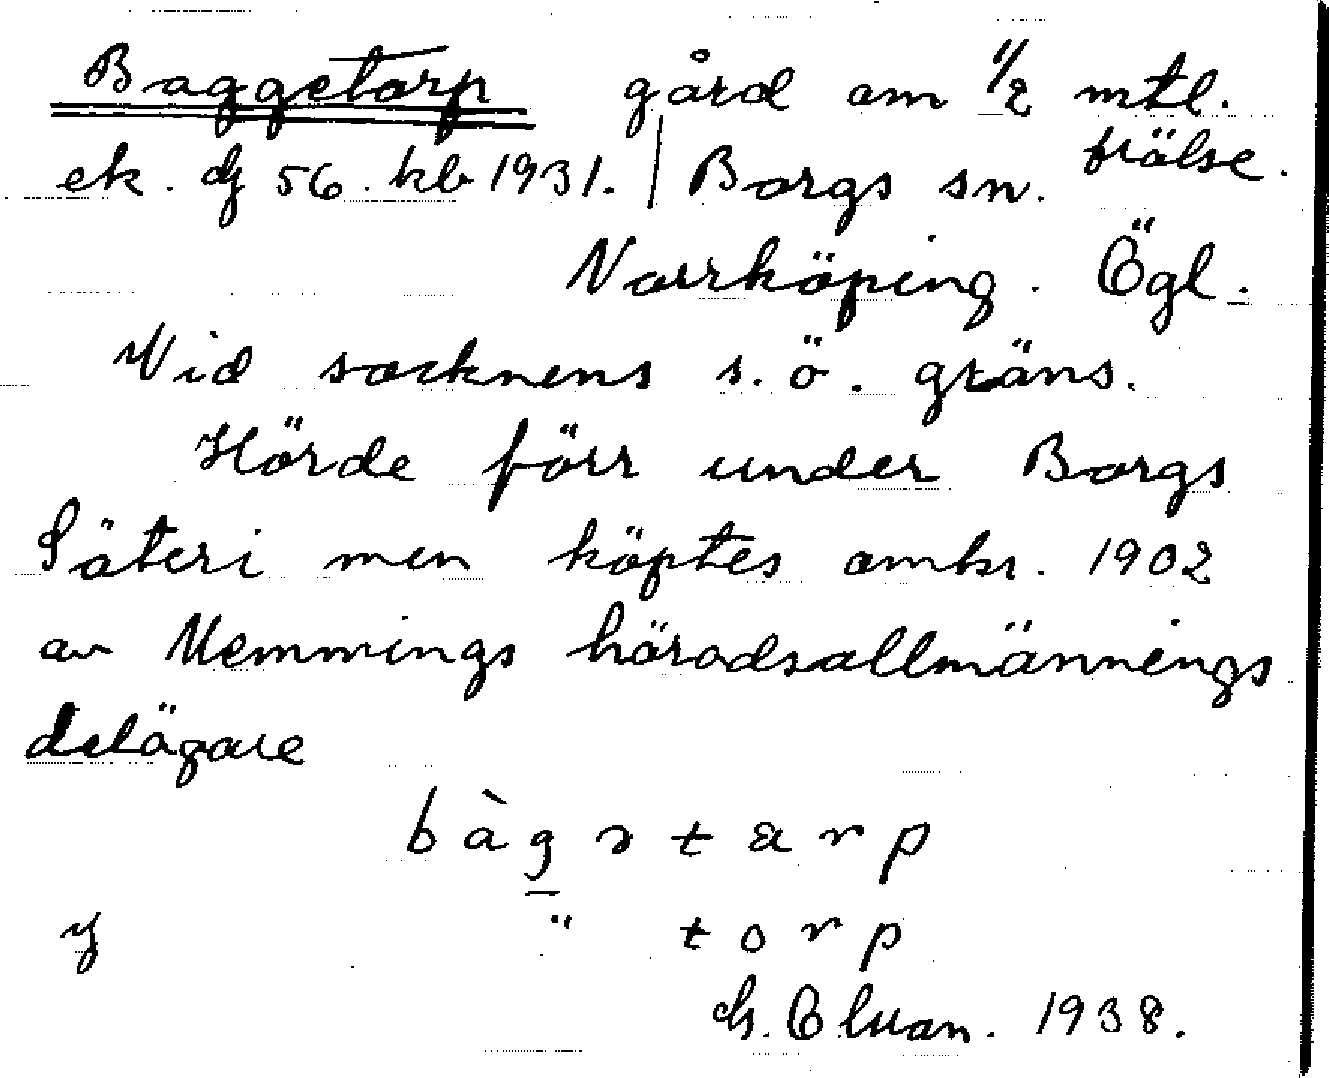 Baggetorp gård om 1/2 mtl. frälse.
ek. dj 56. kb 1931. | Borgs sn.
Norrköping. Ögl.
Vid socknens s. ö. gräns.
Hörde förr under Borgs
Säteri men köptes omkr. 1902
av Memmings häradsallmännings
delägare
bàgətarp
y " torp
G. Elwan. 1938.